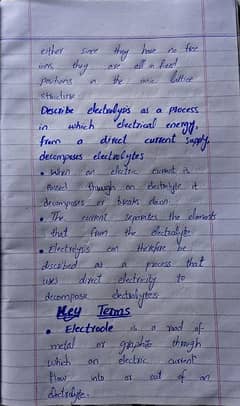 either since they have no free
ions, they are all in fixed
positions in the ionic lattice
structure
Describe electrolysis as a process
in which electrical energy,
from a direct current supply,
decomposes electrolytes
• When an electric current is
passed through an electrolyte it
decomposes or breaks down.
• The current separates the elements
that form the electrolyte.
• Electrolysis can therefore be
described as a process that
uses direct electricity to
decompose electrolytes
Key Terms
• Electrode is a rod of
metal or graphite through
which an electric current
flow into or out of an
electrolyte.